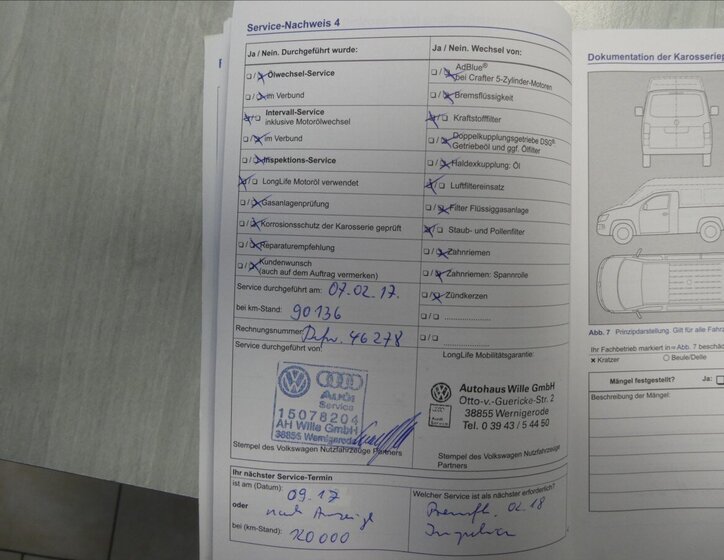 Service-Nachweis 4
Ja / Nein. Durchgeführt wurde:
Ölwechsel-Service
im Verbund
Intervall-Service
inklusive Motorölwechsel
im Verbund
Inspektions-Service
LongLife Motoröl verwendet
Gasanlagenprüfung
Korrosionsschutz der Karosserie geprüft
Reparaturempfehlung
Kundenwunsch
(auch auf dem Auftrag vermerken)
Service durchgeführt am: 07.02.17.
bei km-Stand: 90136
Rechnungsnummer: 46278
Service durchgeführt von:
Audi
Service
15078204
AH Wille GmbH
38855 Wernigerode
Stempel des Volkswagen Nutzfahrzeuge Partners
Ja / Nein. Wechsel von:
AdBlue®
bei Crafter 5-Zylinder-Motoren
Bremsflüssigkeit
Kraftstofffilter
Doppelkupplungsgetriebe DSG®:
Getriebeöl und ggf. Ölfilter
Haldexkupplung: Öl
Luftfiltereinsatz
Filter Flüssiggasanlage
Staub- und Pollenfilter
Zahnriemen
Zahnriemen: Spannrolle
Zündkerzen
LongLife Mobilitätsgarantie:
Autohaus Wille GmbH
Otto-v.-Guericke-Str. 2
38855 Wernigerode
Tel. 0 39 43 / 5 44 50
Stempel des Volkswagen Nutzfahrzeuge
Partners
Ihr nächster Service-Termin
ist am (Datum): 09.17
oder nach Anzeige
bei (km-Stand): 120000
Welcher Service ist als nächster erforderlich?
Bremsfl. 02.18
Dokumentation der Karosseriep
Abb. 7 Prinzipdarstellung. Gilt für alle Fahrz
Ihr Fachbetrieb markiert in ⇒ Abb. 7 beschä
× Kratzer ○ Beule/Delle
Mängel festgestellt? Ja:
Beschreibung der Mängel: